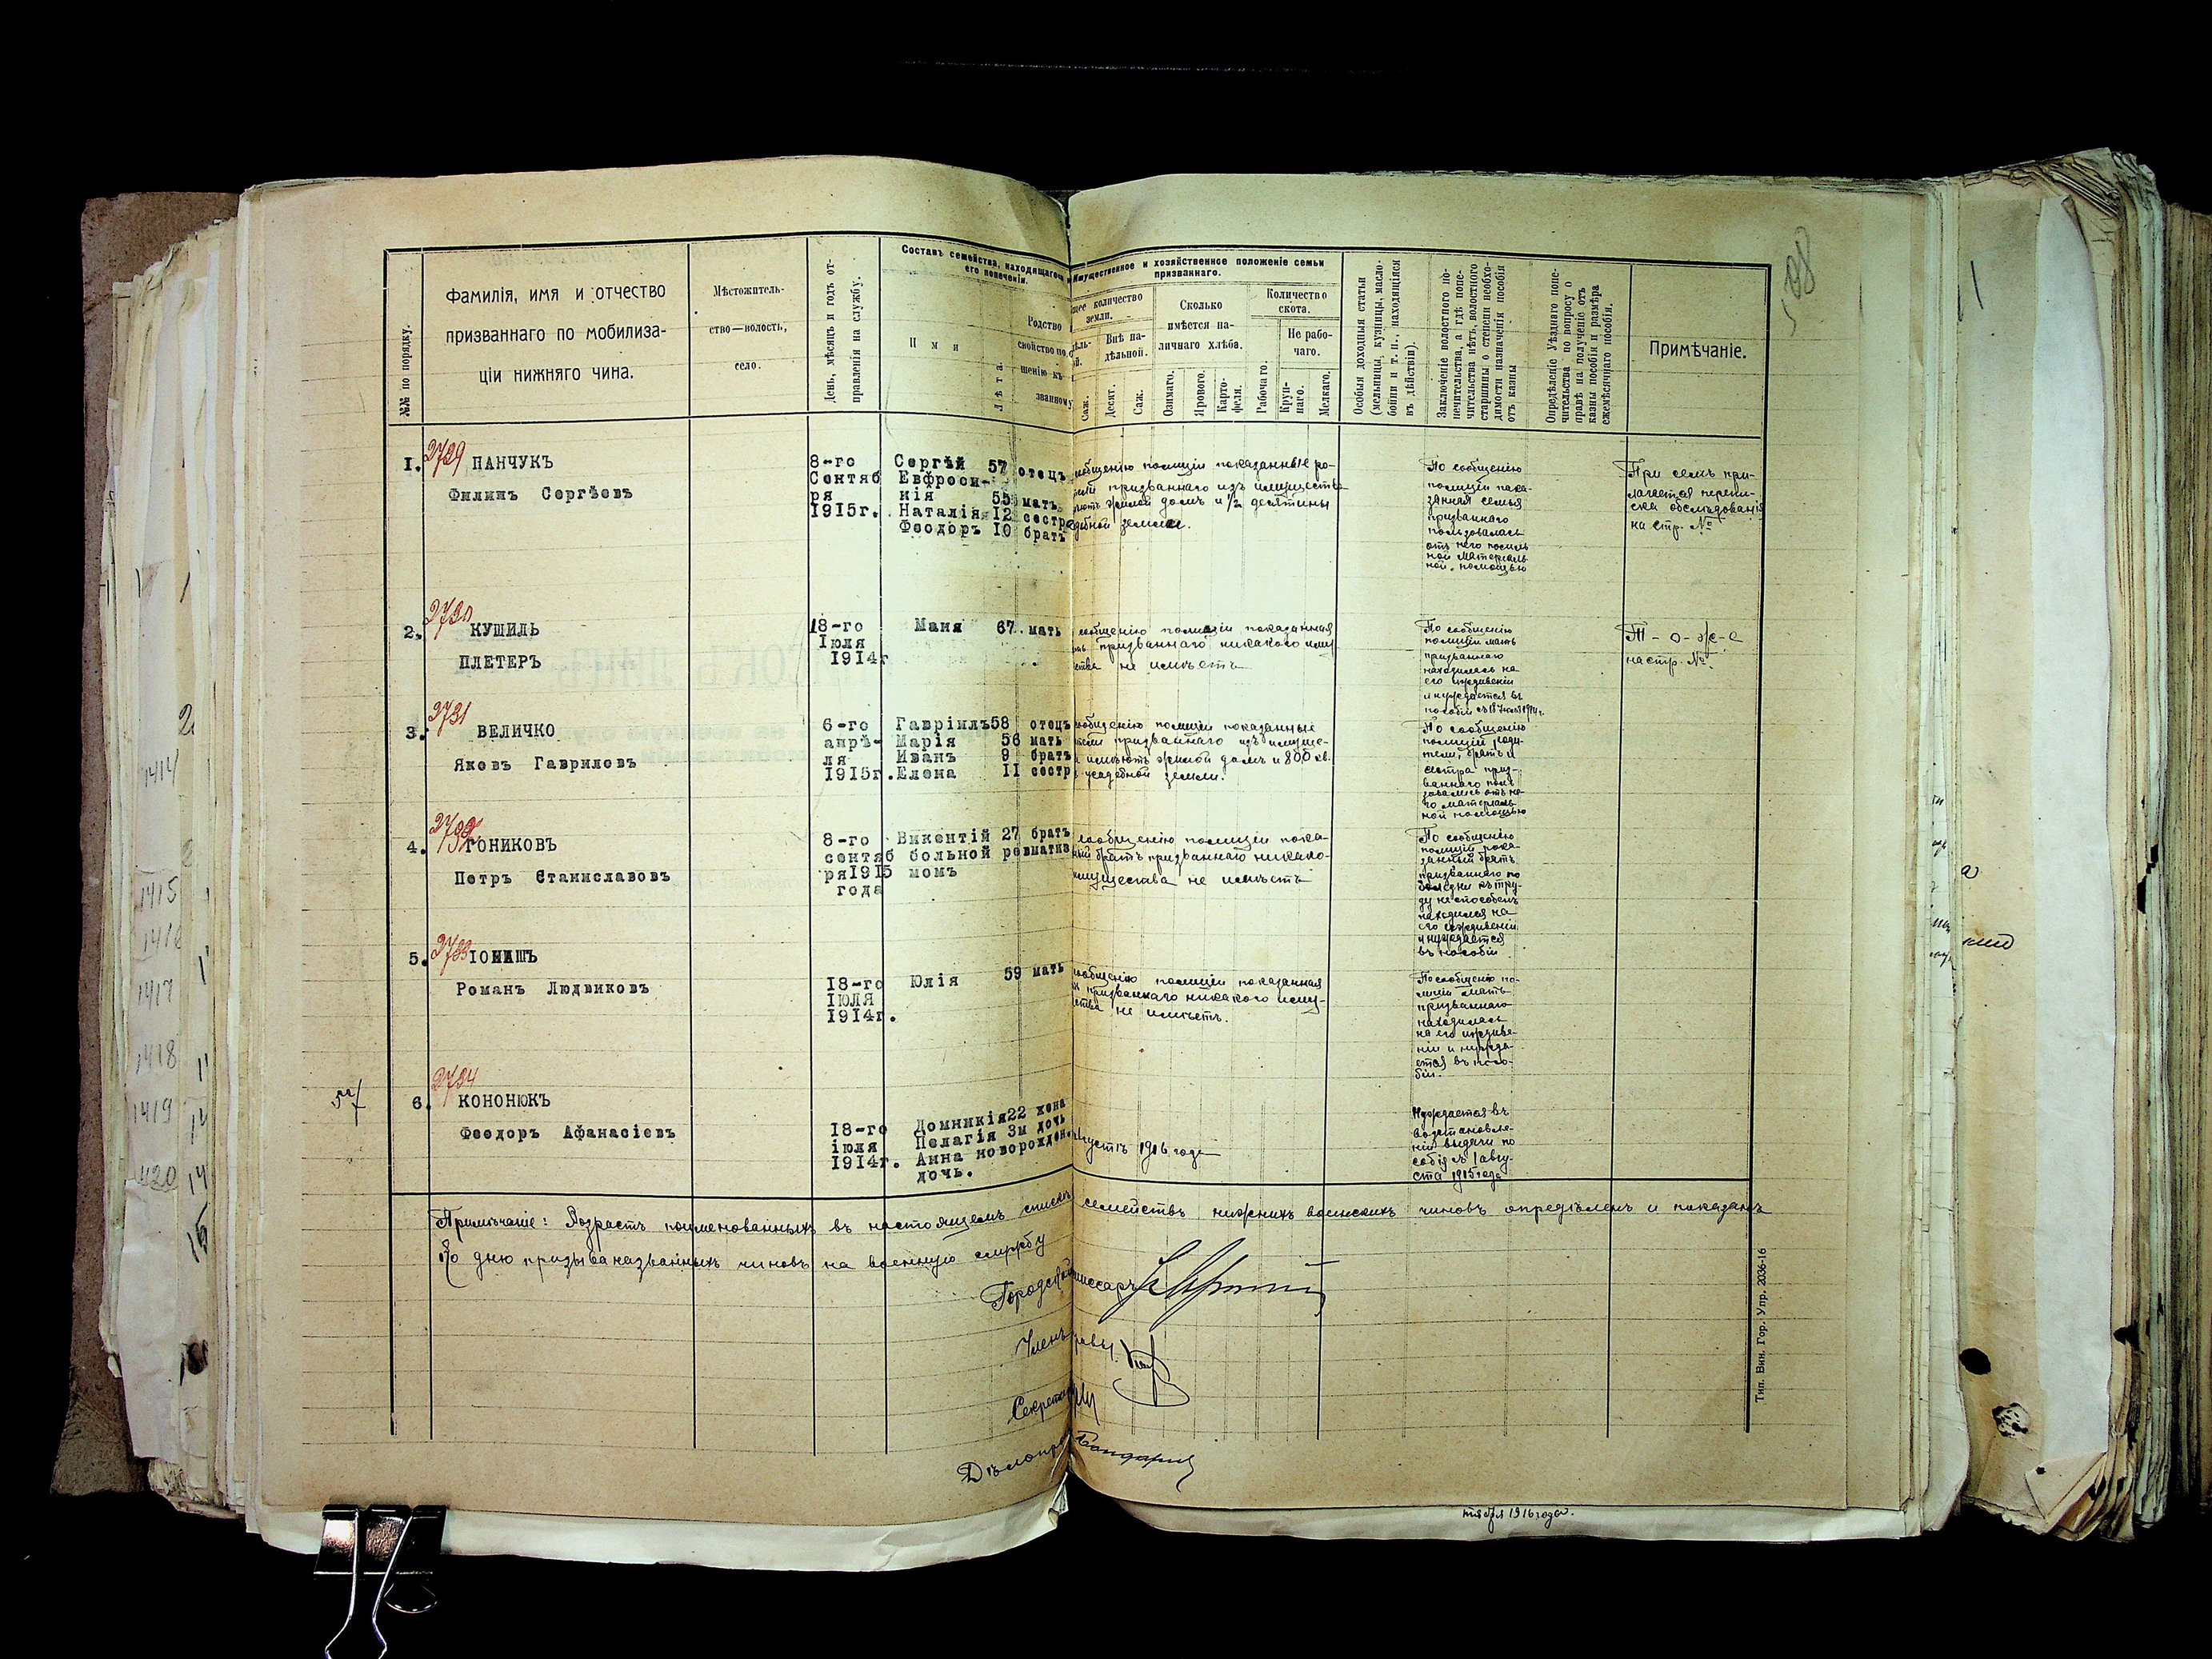 №№ по порядку.
Фамилія, имя и отчество
призваннаго по мобилиза-
ціи нижняго чина.
Мѣстожитель-
ство—волость,
село.
День, мѣсяцъ и годъ от-
правленія на службу.
Составъ семейства, находящагося
его попеченіи.
Имя
Лѣта.
Родство
свойство по
шенію къ
званному
Имущественное и хозяйственное положеніе семьи
призваннаго.
количество
земли.
Внѣ на-
дѣльной.
Саж.
Десят.
Саж.
Сколько
имѣется на-
личнаго хлѣба.
Озимаго.
Ярового.
Карто-
феля.
Количество
скота.
Рабочаго
Не рабо-
чаго.
Круп-
наго.
Мелкаго.
Особыя доходныя статьи
(мельницы, кузницы, масло-
бойни и т. п., находящіяся
въ дѣйствіи).
Заключеніе волостного по-
печительства, а гдѣ попе-
чительства нѣтъ, волостного
старшины о степени необхо-
димости назначенія пособія
отъ казны
Опредѣленіе Уѣзднаго попе-
чительства по вопросу о
правѣ на полученіе отъ
казны пособія и размѣра
ежемѣсячнаго пособія.
Примѣчаніе.
1. 2729 ПАНЧУКЪ
Филипъ Сергѣевъ
8-го
Сентяб
ря
1915г.
Сергѣй 57 отецъ
Евфроси-
нія 55 мать
Наталія 12 сестра
Феодоръ 10 братъ
сообщенію полиціи показанные ро-
призваннаго изъ имущества
жилой домъ и 1/2 десятины
земли.
По сообщенію
полиціи пока-
занная семья
призваннаго
пользовалась
отъ него посиль
ной матеріаль
ной помощью
При семъ при-
лагается перепи-
ска обслѣдованія
на стр. №
2. 2730 КУШИЛЬ
ПЛЕТЕРЪ
18-го
Іюля
1914г
Маня 67 мать
сообщенію полиціи показанная
призваннаго никакого иму
ства не имѣетъ
По сообщенію
полиціи мать
призваннаго
находилась на
его иждивеніи
и нуждается въ
пособіи съ 18 Іюля 1914г.
Т-о-ж-е
на стр. №.
3. 2731 ВЕЛИЧКО
Яковъ Гавриловъ
6-го
апрѣ-
ля
1915г.
Гавріилъ 58 отецъ
Марія 56 мать
Иванъ 9 братъ
Елена 11 сестр
сообщенію полиціи показанные
призваннаго изъ имуще-
имѣютъ жилой домъ и 800 кв.
усадебной земли.
По сообщенію
полиціи роди-
тели, братъ и
сестра приз-
ваннаго поль
зовались отъ не-
го матеріаль
ной помощью
4. 2732 ГОНИКОВЪ
Петръ Станиславовъ
8-го
сентяб
ря1915
года
Викентій 27 братъ
больной ревматиз
момъ
сообщенію полиціи пока-
братъ призваннаго никако-
имущества не имѣетъ
По сообщенію
полиціи пока-
занный братъ
призваннаго по
болѣзни къ тру-
ду неспособенъ
находился на
его иждивеніи
и нуждается
въ пособіи
5. 2733
Романъ Людвиковъ
18-го
ІЮЛЯ
1914г.
Юлія 59 мать
сообщенію полиціи показанная
призваннаго никакого иму-
ства не имѣетъ.
По сообщенію по-
лиціи мать
призваннаго
находилась
на его иждиве-
ніи и нужда-
ется въ посо-
біи.
6. 2734
КОНОНЮКЪ
Феодоръ Афанасіевъ
18-го
іюля
1914г.
Домникія 22 жена
Пелагія 3м дочь
Анна новорожден.
дочь.
Августъ 1916 года
Нуждается въ
возстановле-
ніи выдачи по
собія съ 1 авгу-
ста 1915 года
Примѣчаніе: Возрастъ поименованныхъ въ настоящемъ спискѣ семействъ нижнихъ воинскихъ чиновъ опредѣленъ и показанъ
ко дню призыва названныхъ чиновъ на военную службу
Городской
Членъ
Секретарь
Дѣлопр
Тип. Вин. Гор. Упр. 2036-16
тября 1916 года.
1414
1415
1416
1417
1418
1419
1420